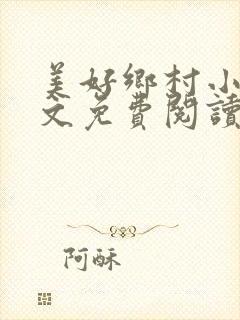 美好鄉村小
文免費閱讀
阿酥